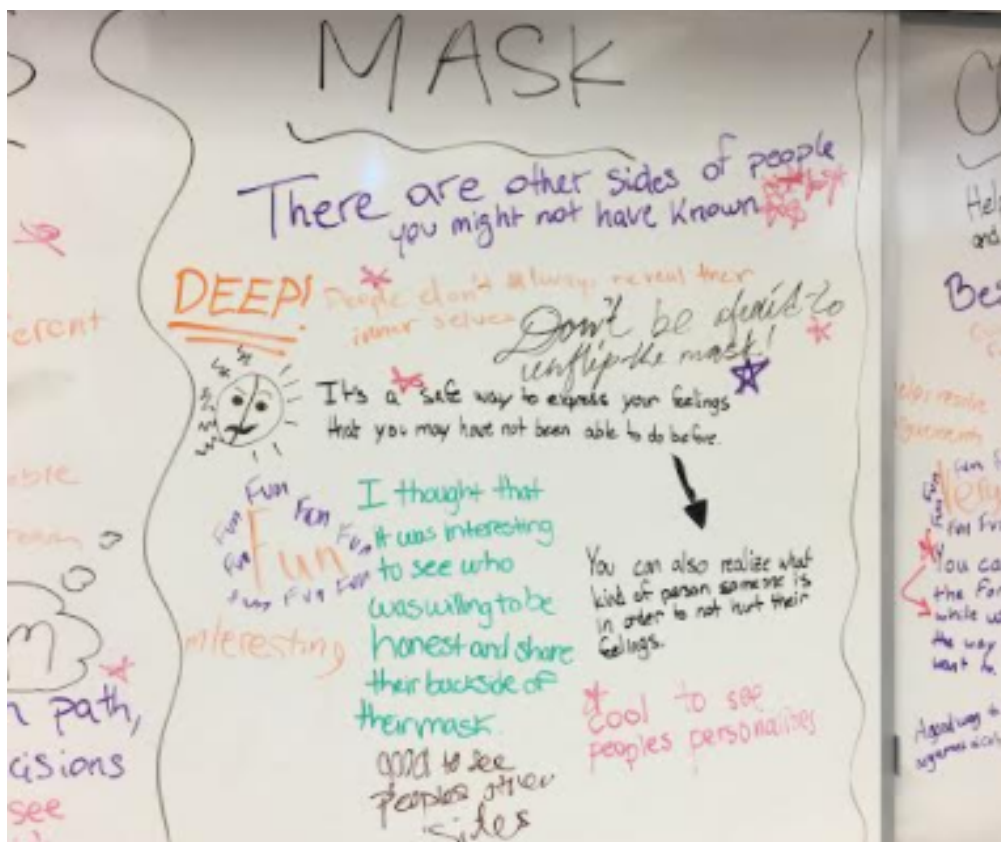 MASK
There are other sides of people
you might not have known
DEEP!
People don't always reveal their
inner selves
Don't be afraid to
unflip the mask!
It's a safe way to express your feelings
that you may have not been able to do before.
Fun
Fun
Fun
Fun
Fun
Fun
Fun
Fun
Fun
interesting
I thought that
it was interesting
to see who
was willing to be
honest and share
their backside of
their mask.
good to see
peoples other
sides
You can also realize what
kind of person someone is
in order to not hurt their
feelings.
cool to see
peoples personalities
erent
path,
cisions
see
Hel
and
Be
helps resolve
Fun
Fun
You ca
the For
while w
the way
want to.
A good way t